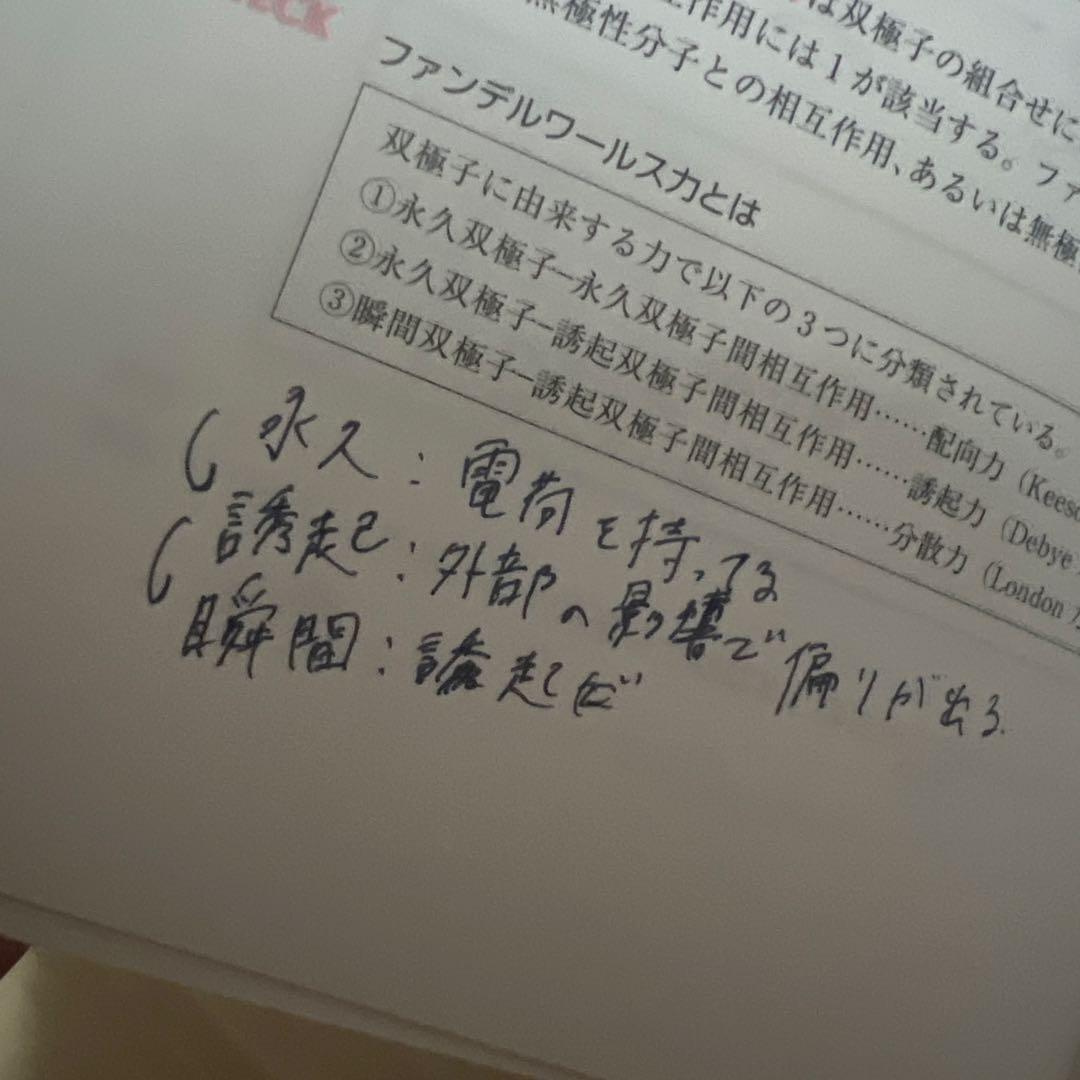 ECK
は双極子の組合せに
互作用には1が該当する。ファ
無極性分子との相互作用、あるいは無極
ファンデルワールス力とは
双極子に由来する力で以下の3つに分類されている。
①永久双極子−永久双極子間相互作用……配向力（Keeso
②永久双極子−誘起双極子間相互作用……誘起力（Debye
③瞬間双極子−誘起双極子間相互作用……分散力（London
永久：電荷を持ってる
誘起：外部の影響で偏りが出る
瞬間：誘起だ